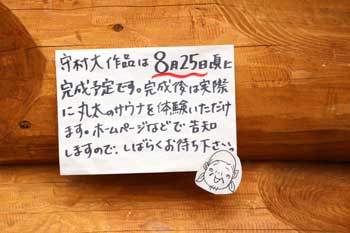 守村大作品は8月25日頃に
完成予定です。完成後は実際
に丸太のサウナを体験いただけ
ます。ホームページなどで告知
しますので、しばらくお待ち下さい。